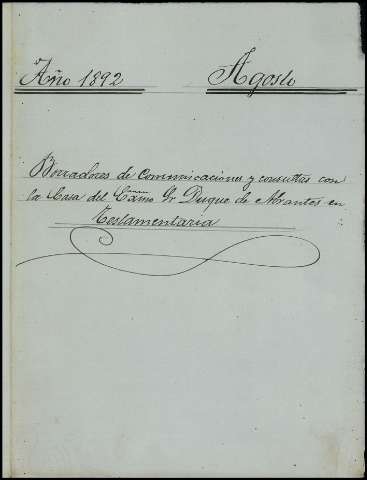 Año 1892 Agosto
Borradores de Comunicaciones y consultas con
la Casa del Excmo Sr Duque de Abrantes en
Testamentaria